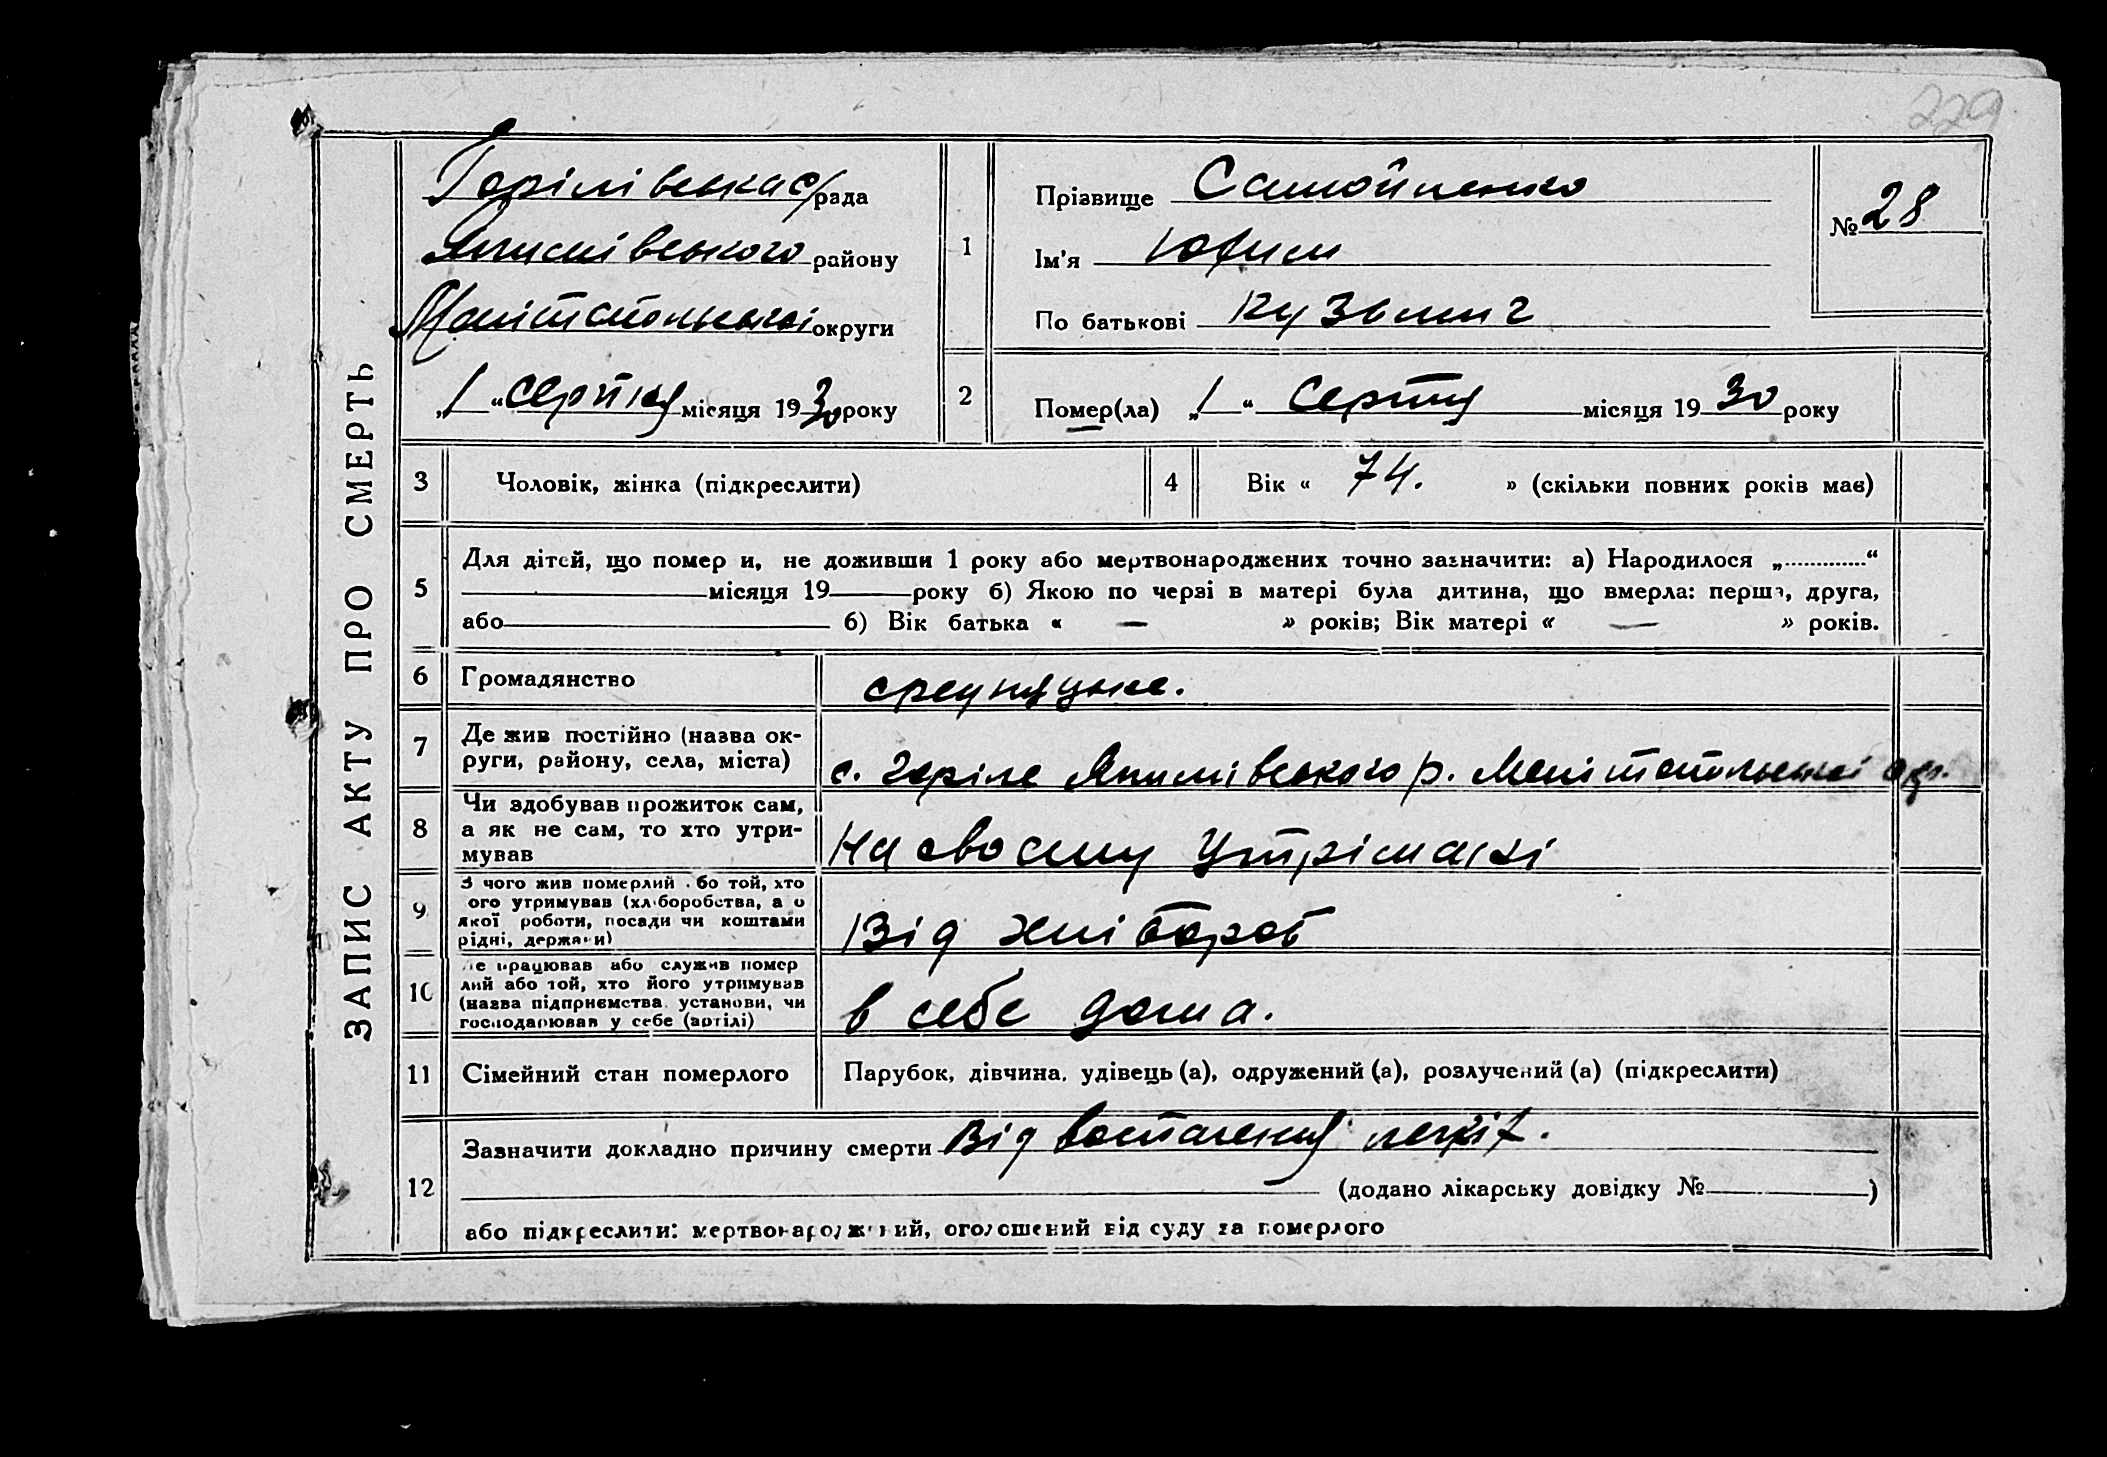 229
ЗАПИС АКТУ ПРО СМЕРТЬ
Горілівська с/рада
Якимівського району
Мелітопольської округи
„1“ серпня місяця 1930 року
1
Прізвище Самойленко
Ім'я Юхим
По батькові Кузьмич
№ 28
2
Помер(ла) „1“ Серпня місяця 1930 року
3 Чоловік, жінка (підкреслити)
4 Вік « 74. » (скільки повних років має)
5
Для дітей, що помер и, не доживши 1 року або мертвонароджених точно зазначити: а) Народилося „.............“
місяця 19 року б) Якою по черзі в матері була дитина, що вмерла: перша, друга,
або б) Вік батька « — » років; Вік матері « — » років.
6 Громадянство
7 Де жив постійно (назва ок-
руги, району, села, міста)
с. Горіле Якимівського р. Мелітопольської окр.
8 Чи здобував прожиток сам,
а як не сам, то хто утри-
мував
На своєму утріманні
9 З чого жив померлий або той, хто
ого утримував (хліборобства, а о
якої роботи, посади чи коштами
рідні, держави)
Від хлібороб
10 Де працював або служив помер
лий або той, хто його утримував
(назва підприємства, установи, чи
господарював у себе (артілі)
в себе дома.
11 Сімейний стан померлого
Парубок, дівчина, удівець (а), одружений (а), розлучений (а) (підкреслити)
12
Зазначити докладно причину смерти Від воспаления легкіх.
(додано лікарську довідку № )
або підкреслити: мертвонароджений, оголошений від суду за померлого